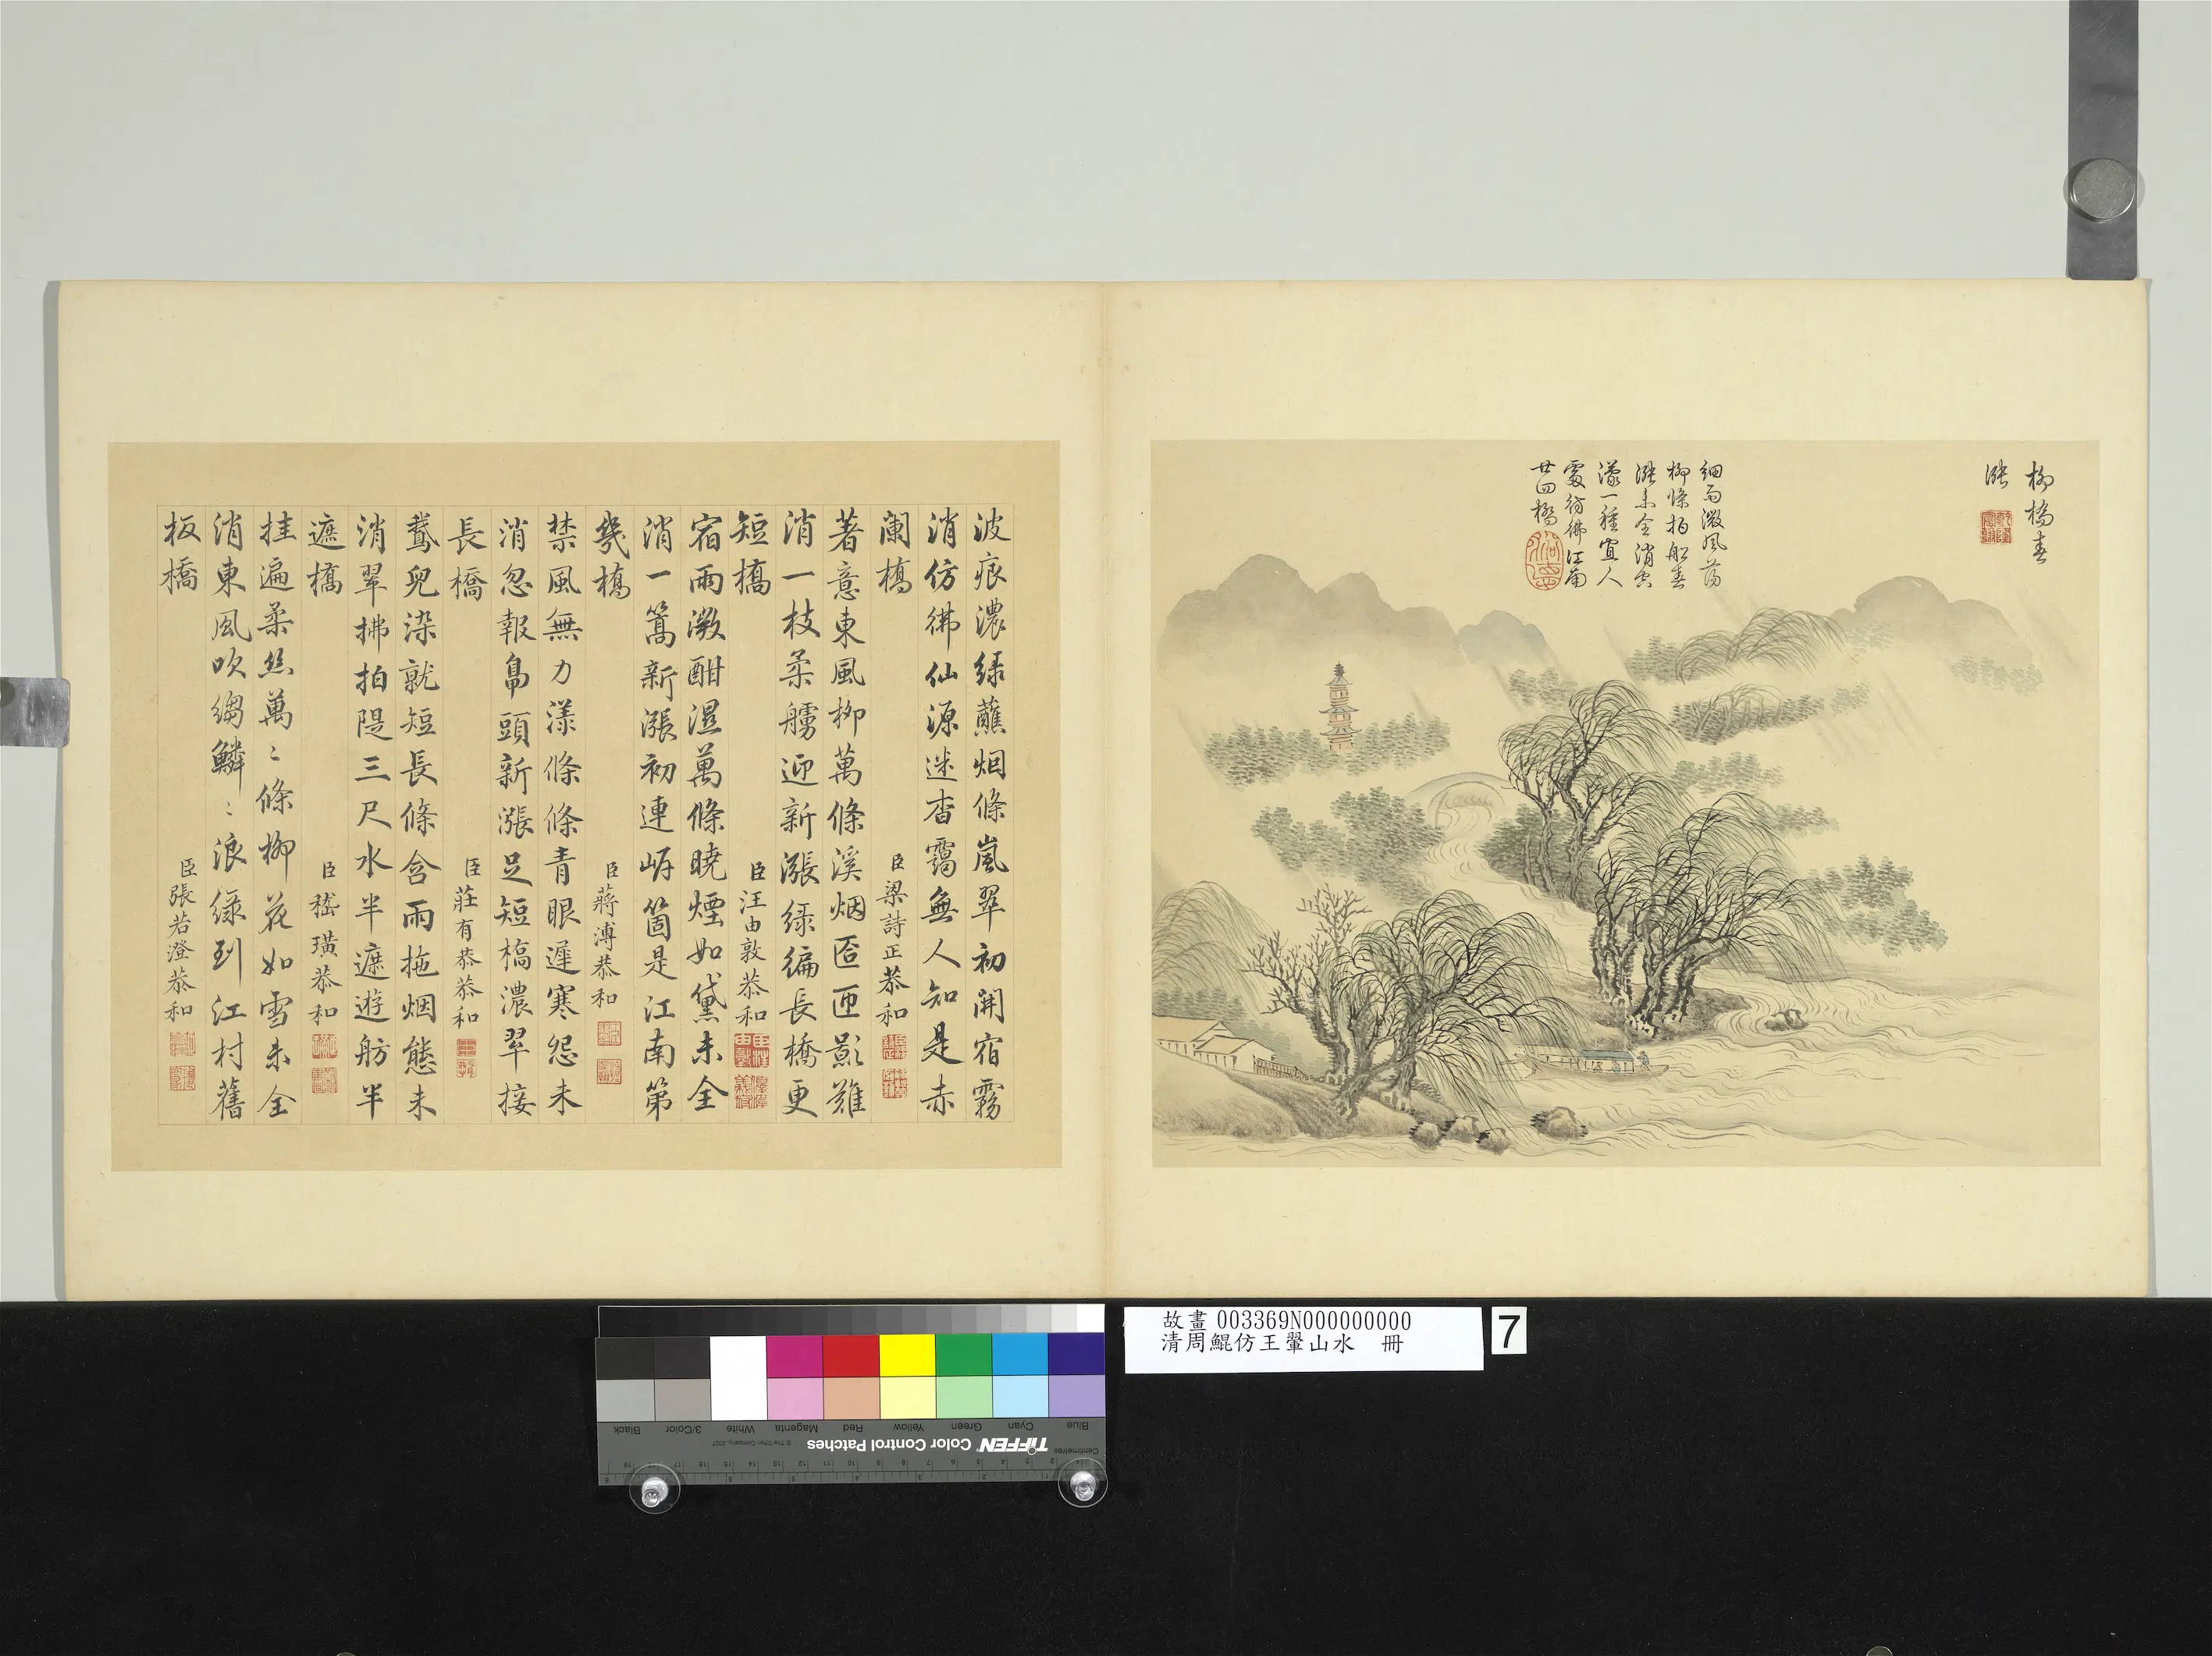 柳橋春
漲
細雨微風蕩
柳條拍船春
漲未全消空
濛一種宜人
處彷彿江南
廿四橋
波痕濃綠蘸烟條嵐翠初開宿霧
消仿彿仙源迷杳靄無人知是赤
闌橋
臣梁詩正恭和
著意東風柳萬條溪烟匼匝影難
消一枝柔艣迎新漲綠徧長橋更
短橋
臣汪由敦恭和
宿雨漵酣濕萬條曉煙如黛未全
消一篙新漲初連岸箇是江南第
幾橋
臣蔣溥恭和
禁風無力漾條條青眼遲寒怨未
消忽報鳧頭新漲足短橋濃翠接
長橋
臣莊有恭恭和
鵞兒染就短長條含雨拖烟態未
消翠拂拍隄三尺水半遮遊舫半
遮橋
臣嵇璜恭和
挂遍柔絲萬〻條柳花如雪未全
消東風吹縐鱗〻浪綠到江村舊
板橋
臣張若澄恭和
故畫 003369N000000000
清周鯤仿王翬山水 冊
7
Blue
Cyan
Green
Yellow
Red
Magenta
White
3/Color
Black
Centimetres
TIFFEN Color Control Patches
© The Tiffen Company, 2007